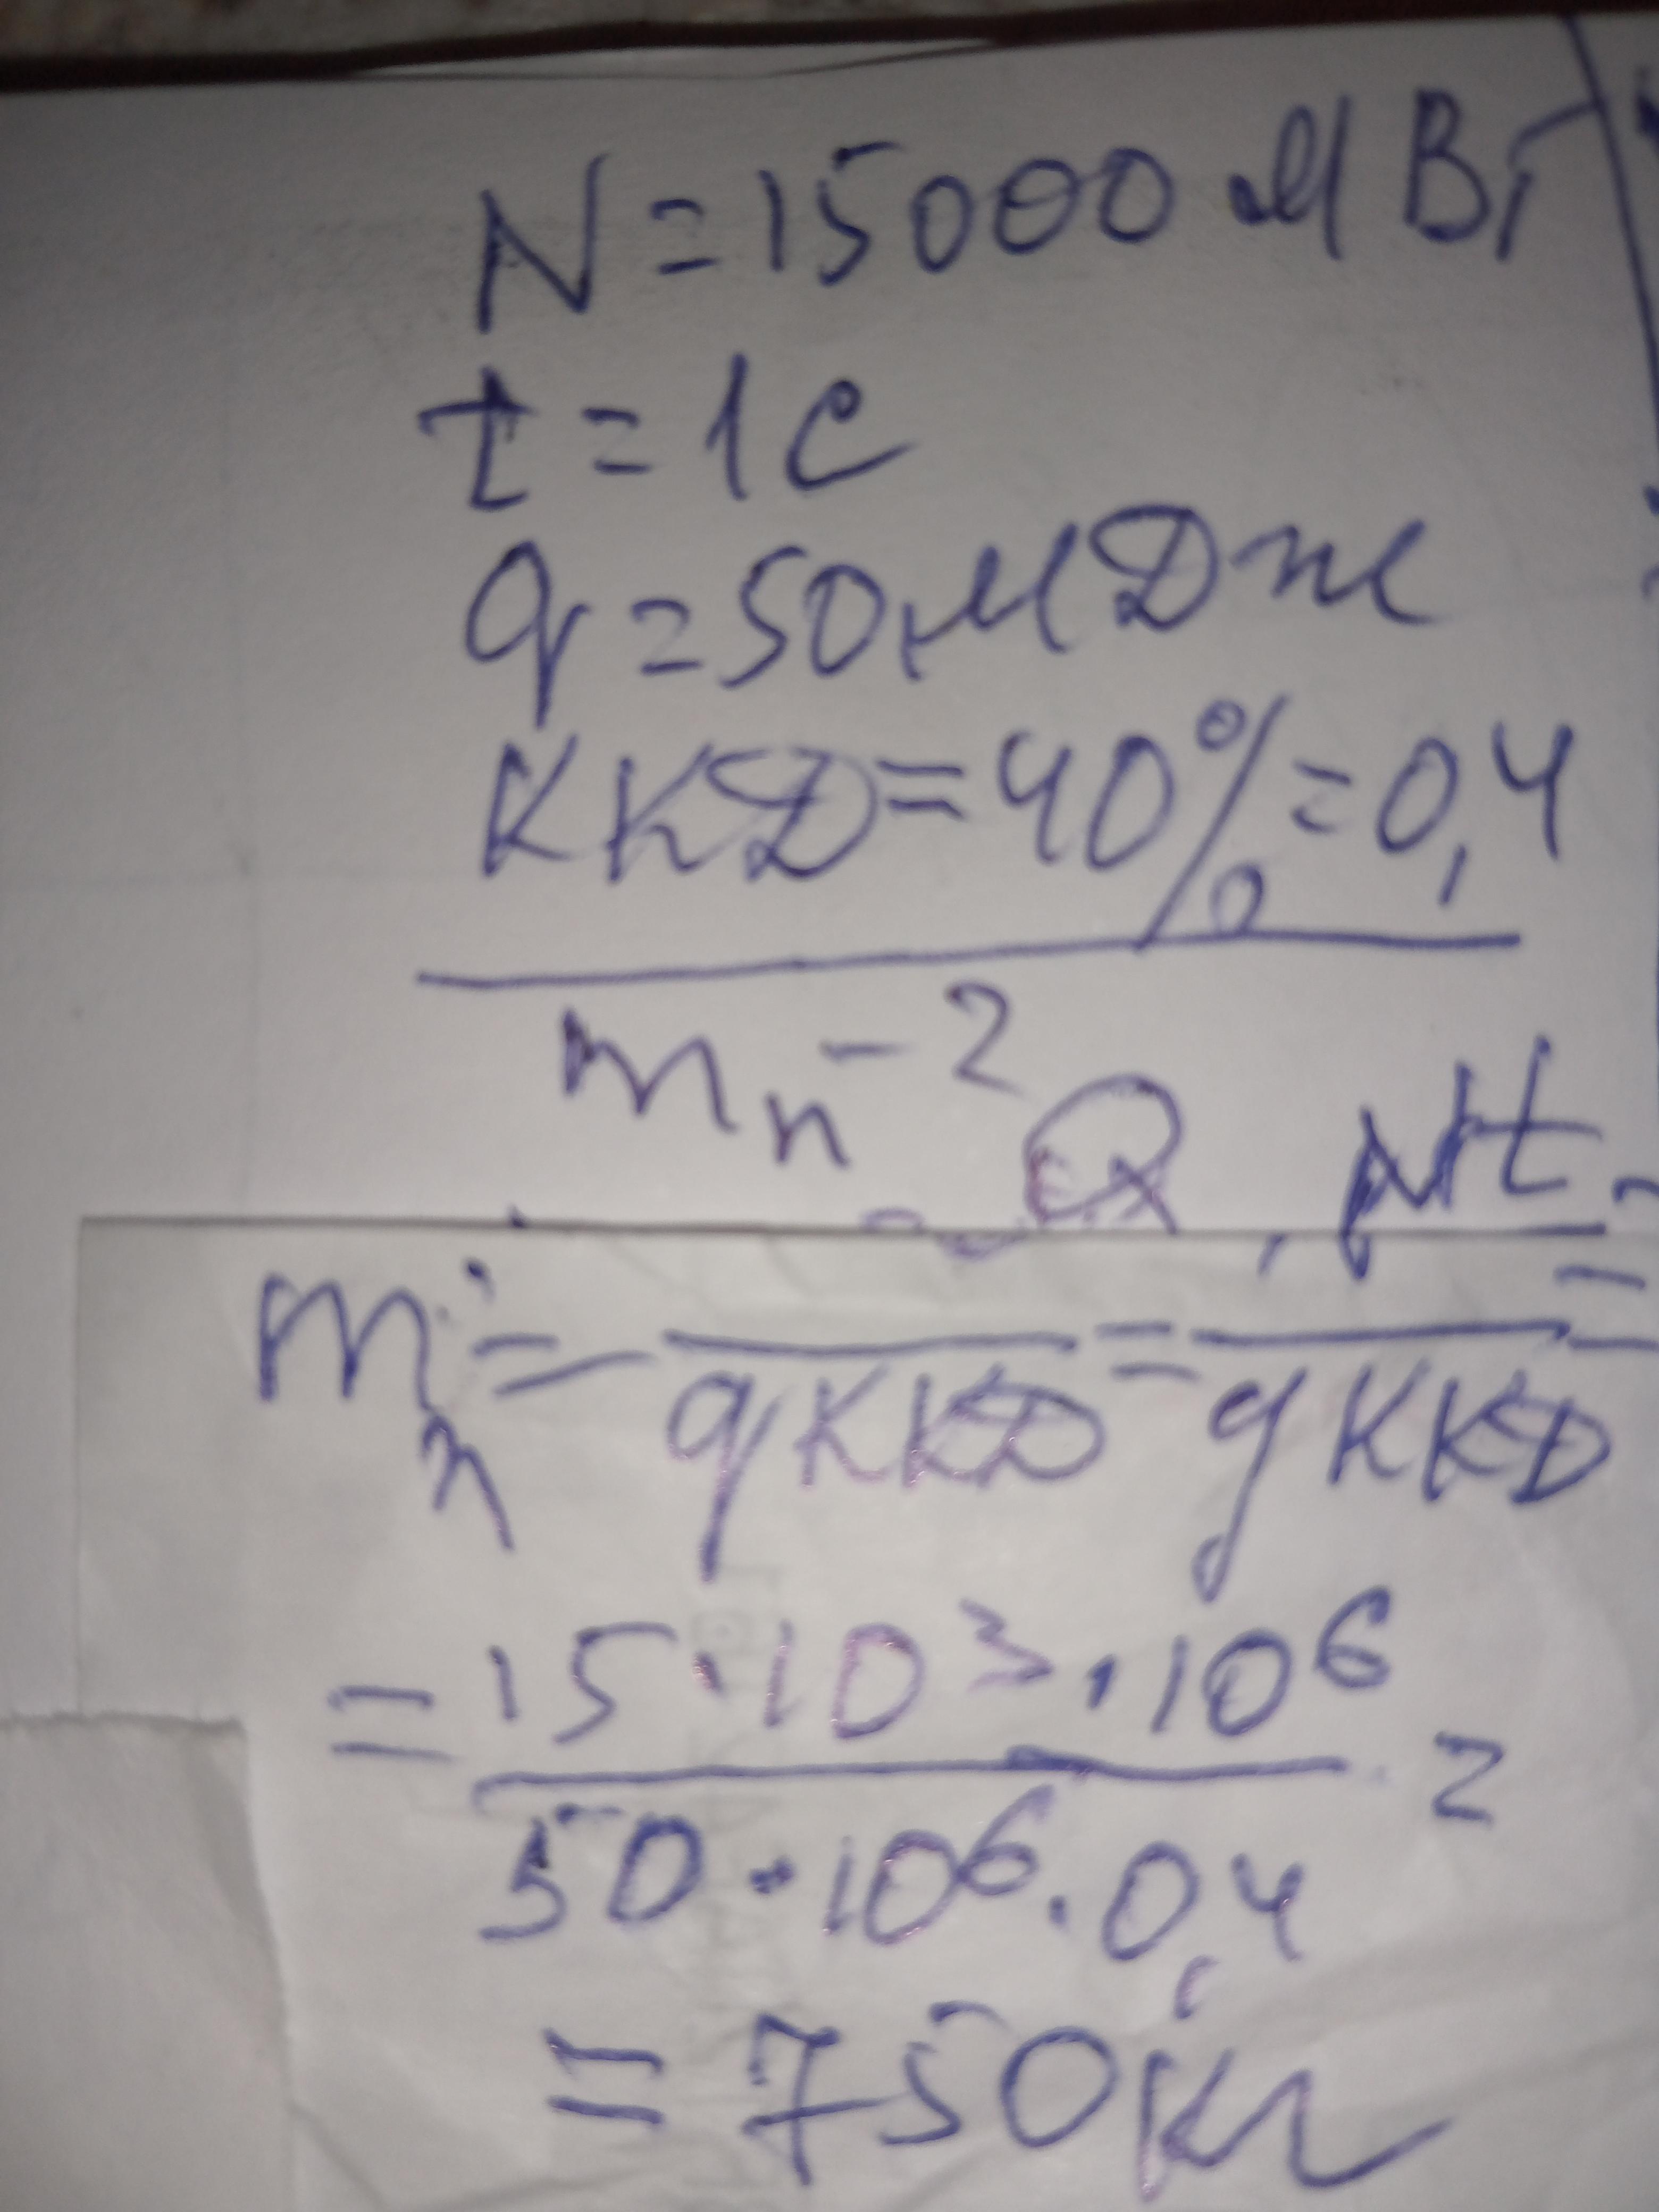 N=15000 МВт
t=1с
q=50 МДж
ККД=40%=0,4
mп-?
mп=Q/qККД=Nt/qККД=
=15·10³·10⁶/50·10⁶·0,4=
=750кг